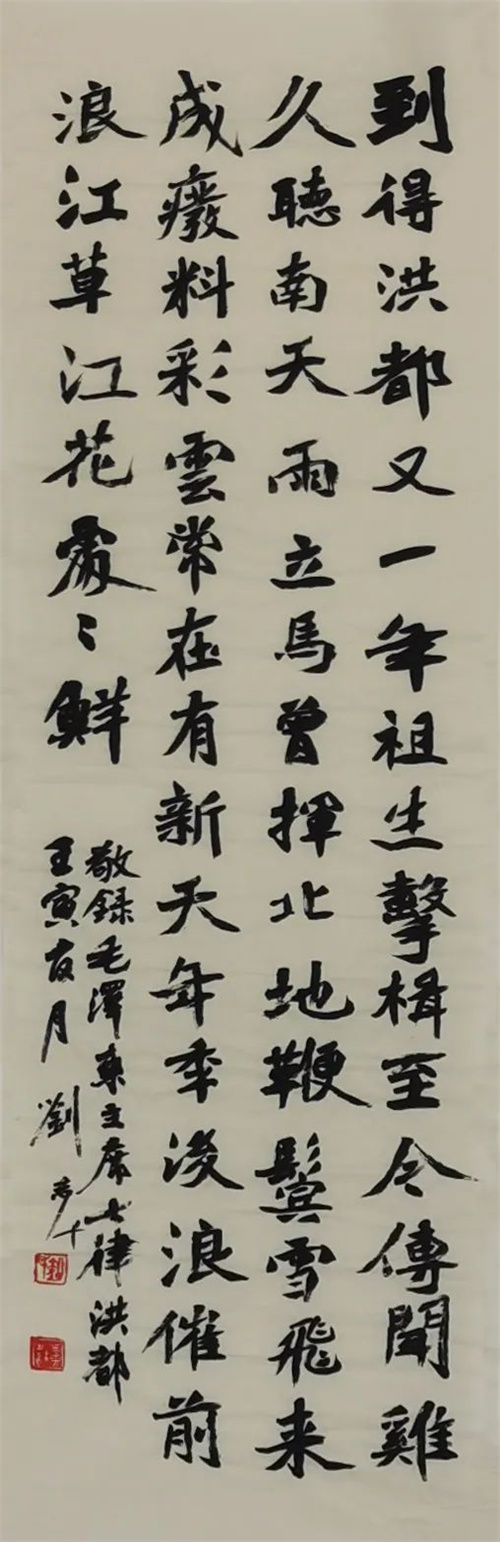 到得洪都又一年祖生擊楫至今傳聞雞
久聽南天雨立馬曾揮北地鞭鬢雪飛来
成癈料彩雲常在有新天年秊後浪催前
浪江草江花處〻鮮
敬録毛澤東主席七律洪都
壬寅月劉